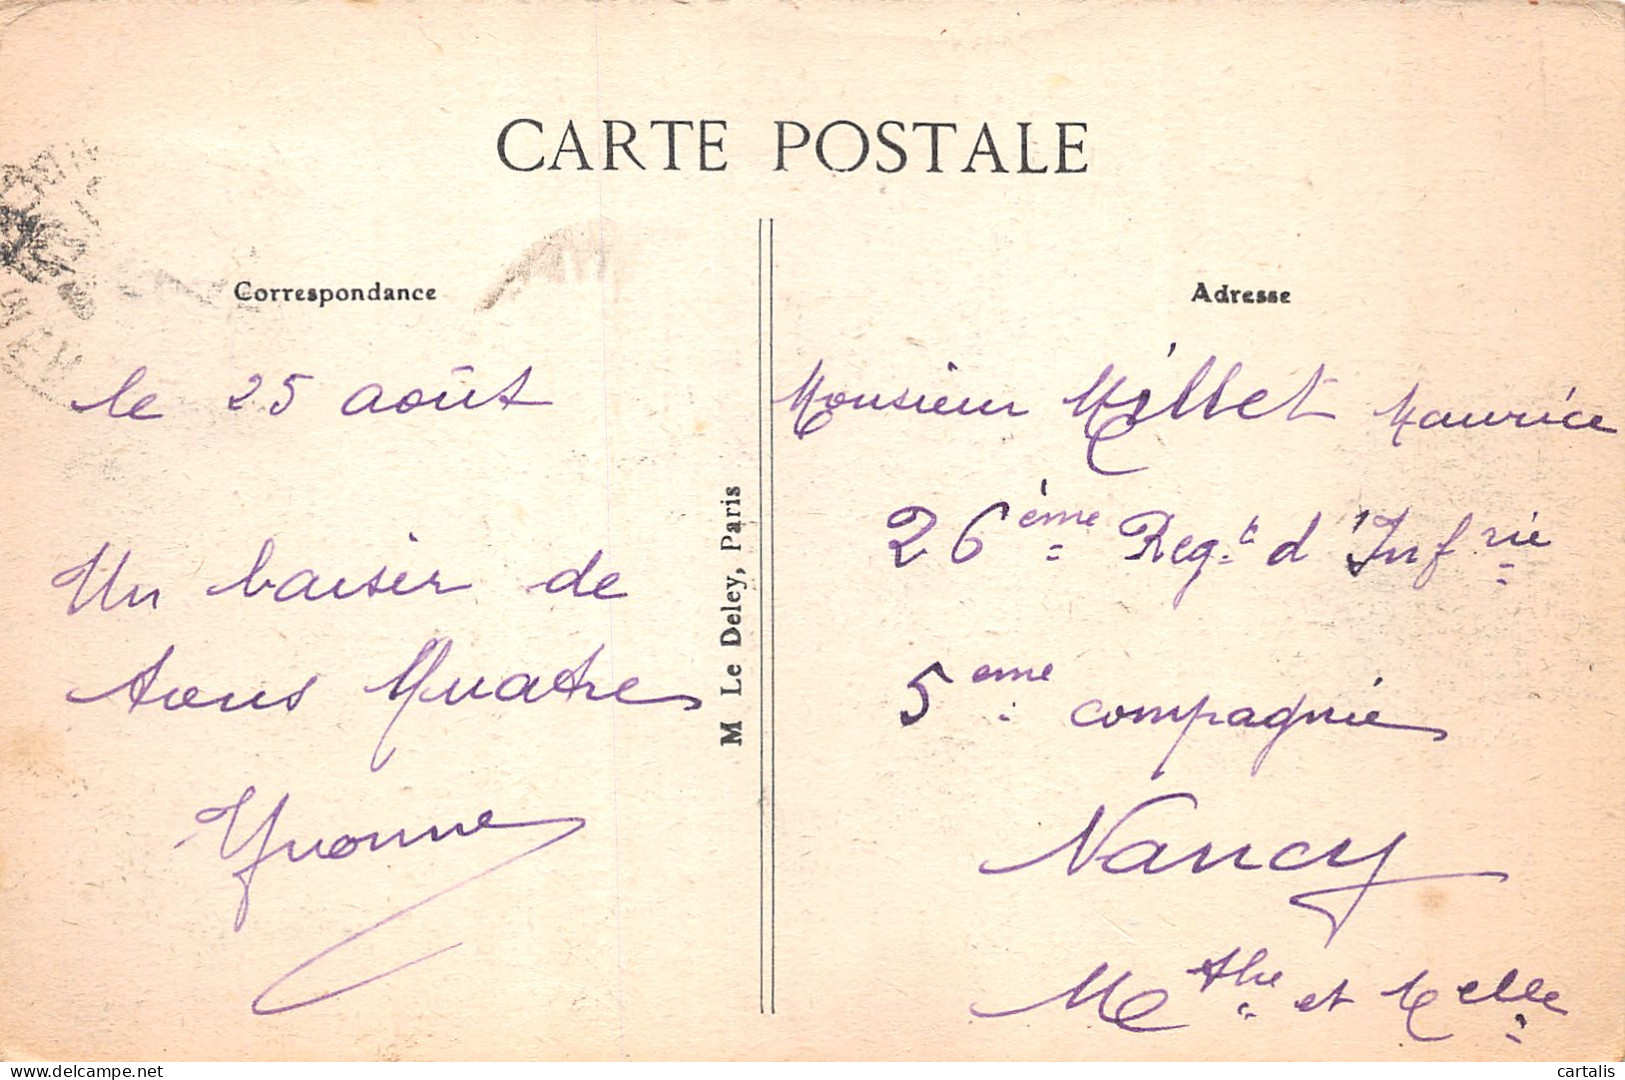 CARTE POSTALE
Correspondance
le 25 août
Un baiser de
tous Quatre
Yvonne
M Le Deley, Paris
Adresse
Monsieur Millet Maurice
26ème Reg.t d'Infrie
5eme compagnie
Nancy
Methe et Melle
delcampe.net
cartalis